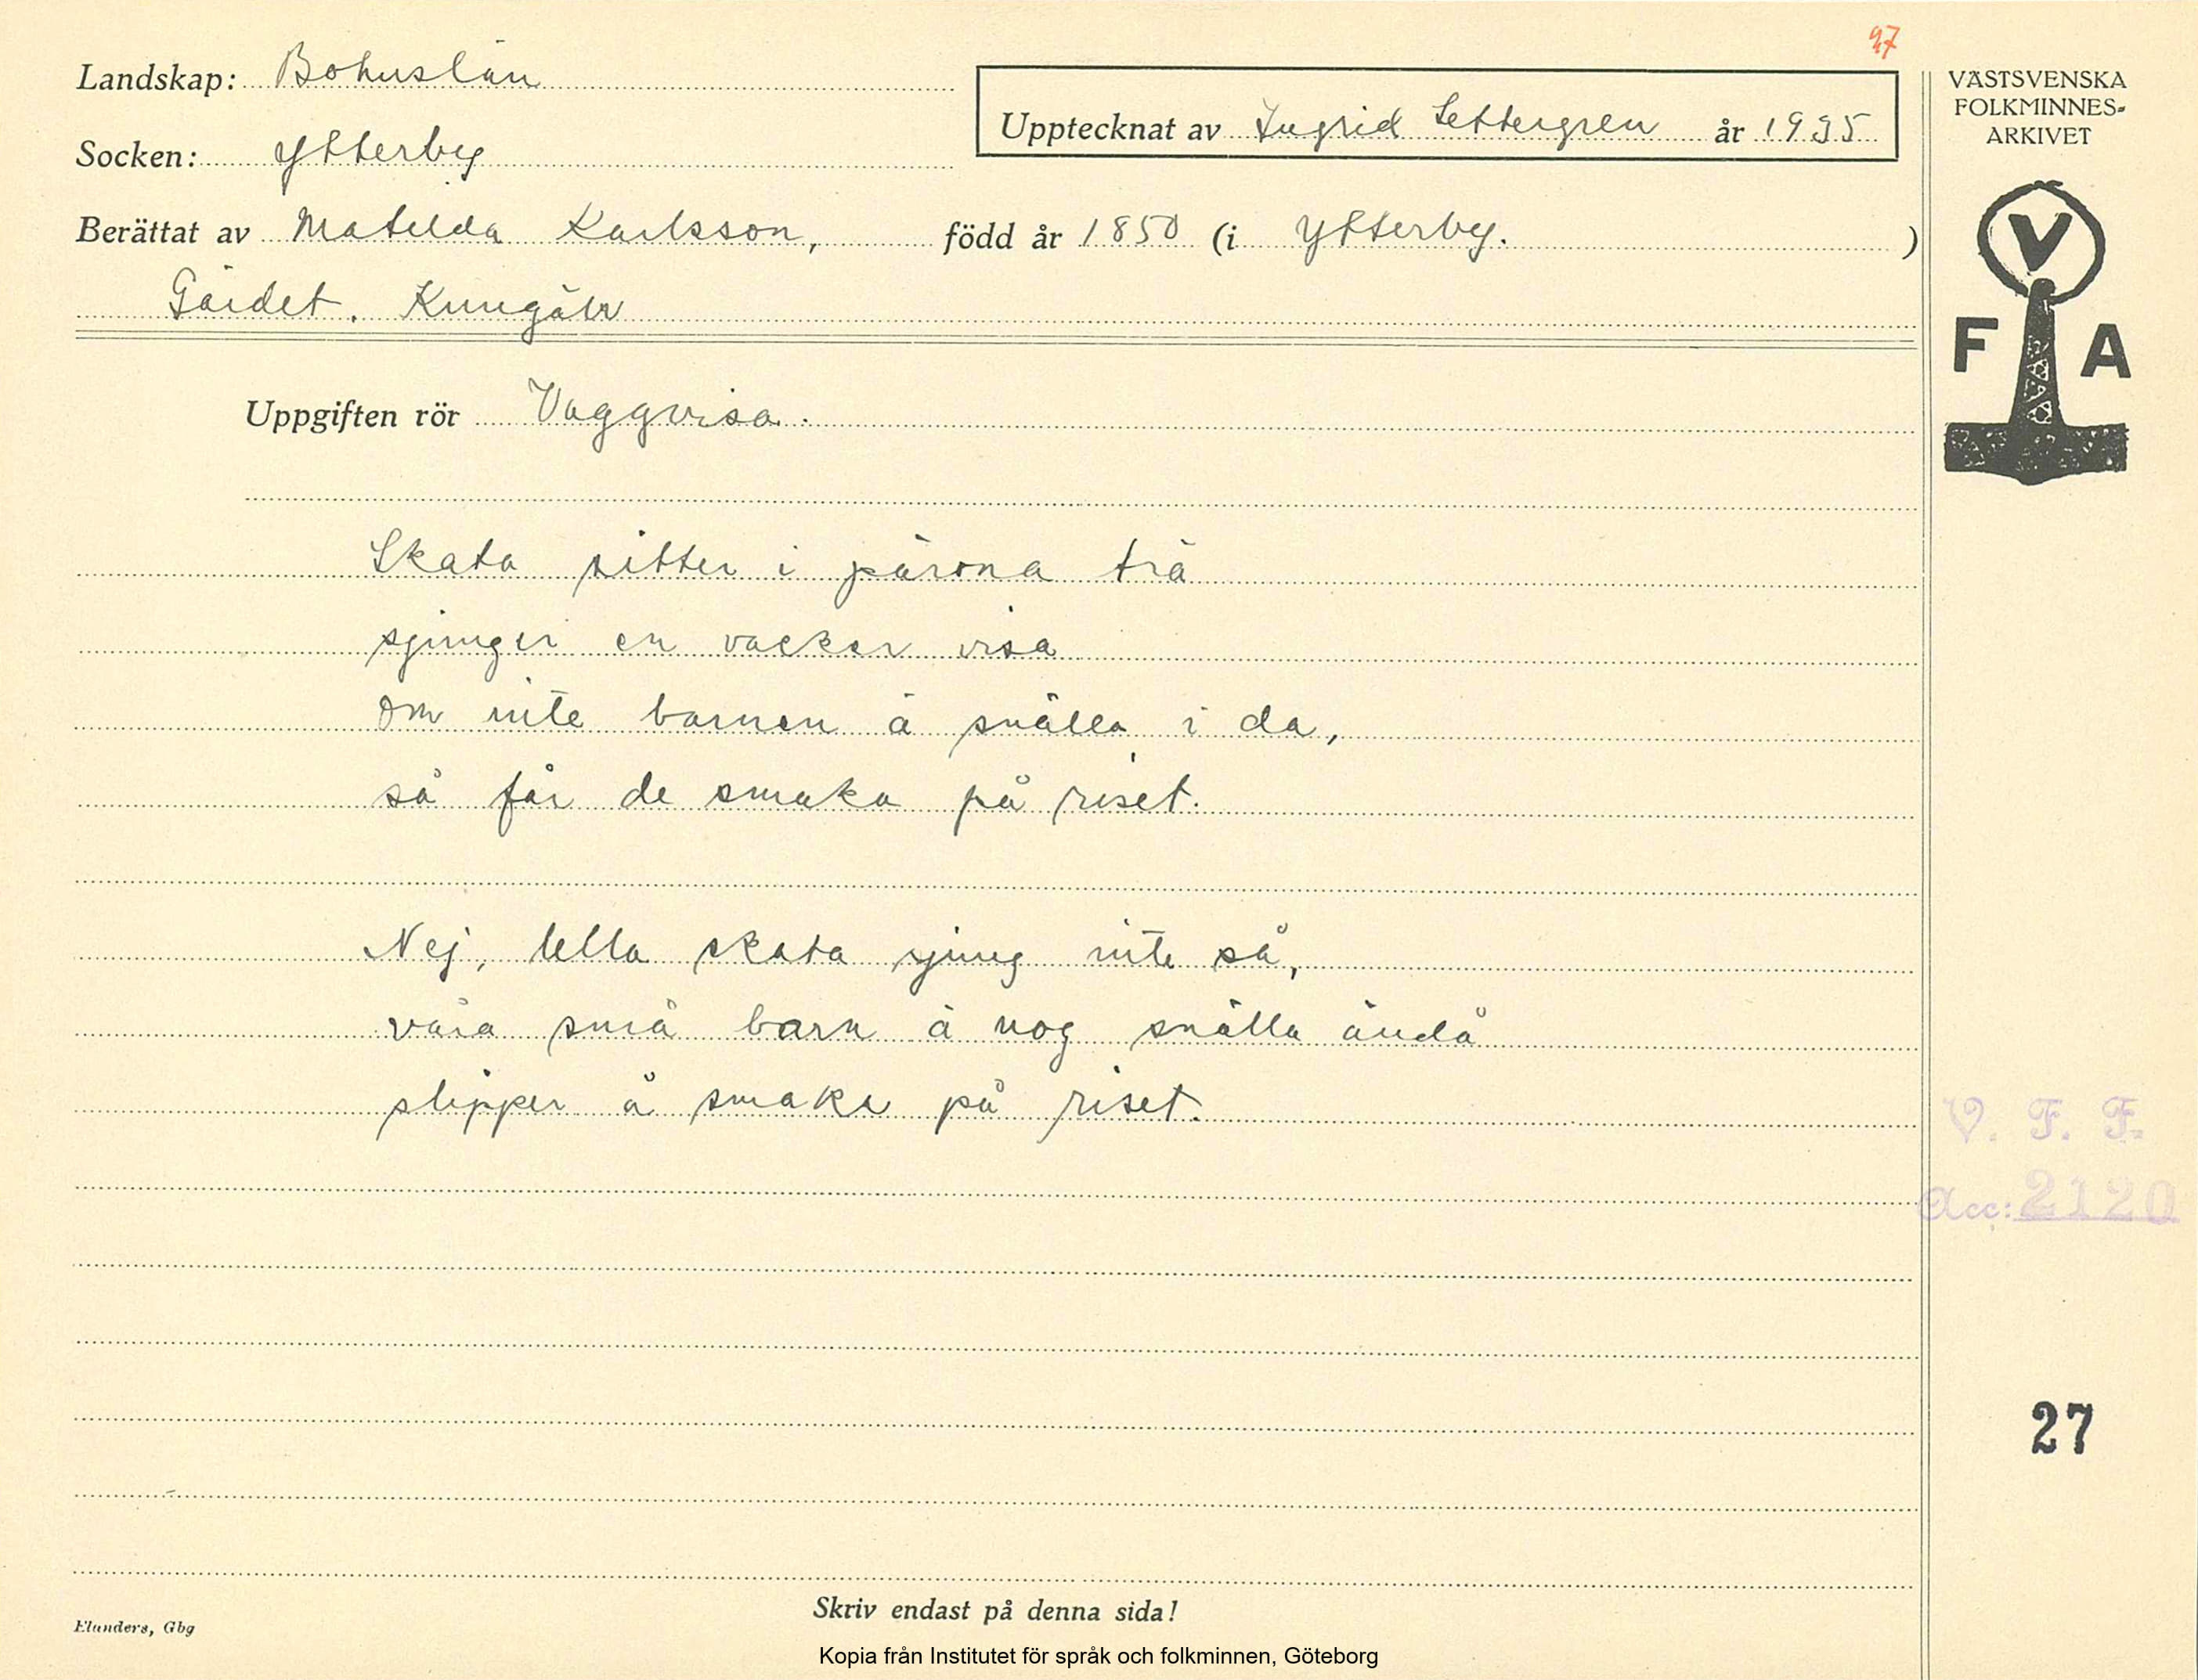 27
Landskap: Bohuslän
Upptecknat av Ingrid Settergren år 1935
Socken: Ytterby
Berättat av Matilda Karlsson, född år 1850 (i Ytterby. )
Gärdet. Kungälv
VÄSTSVENSKA
FOLKMINNES-
ARKIVET
V
F A
Uppgiften rör Vaggvisa.
Skata sitter i pärona trä
sjunger en vacker visa
om inte barnen ä snälla i da,
så får de smaka på riset.
Nej, lella skata sjung inte så,
våra små barn ä nog snälla ändå
slipper å smaka på riset.
V. F. F.
Acc: 2120
27
Skriv endast på denna sida!
Elanders, Gbg
Kopia från Institutet för språk och folkminnen, Göteborg